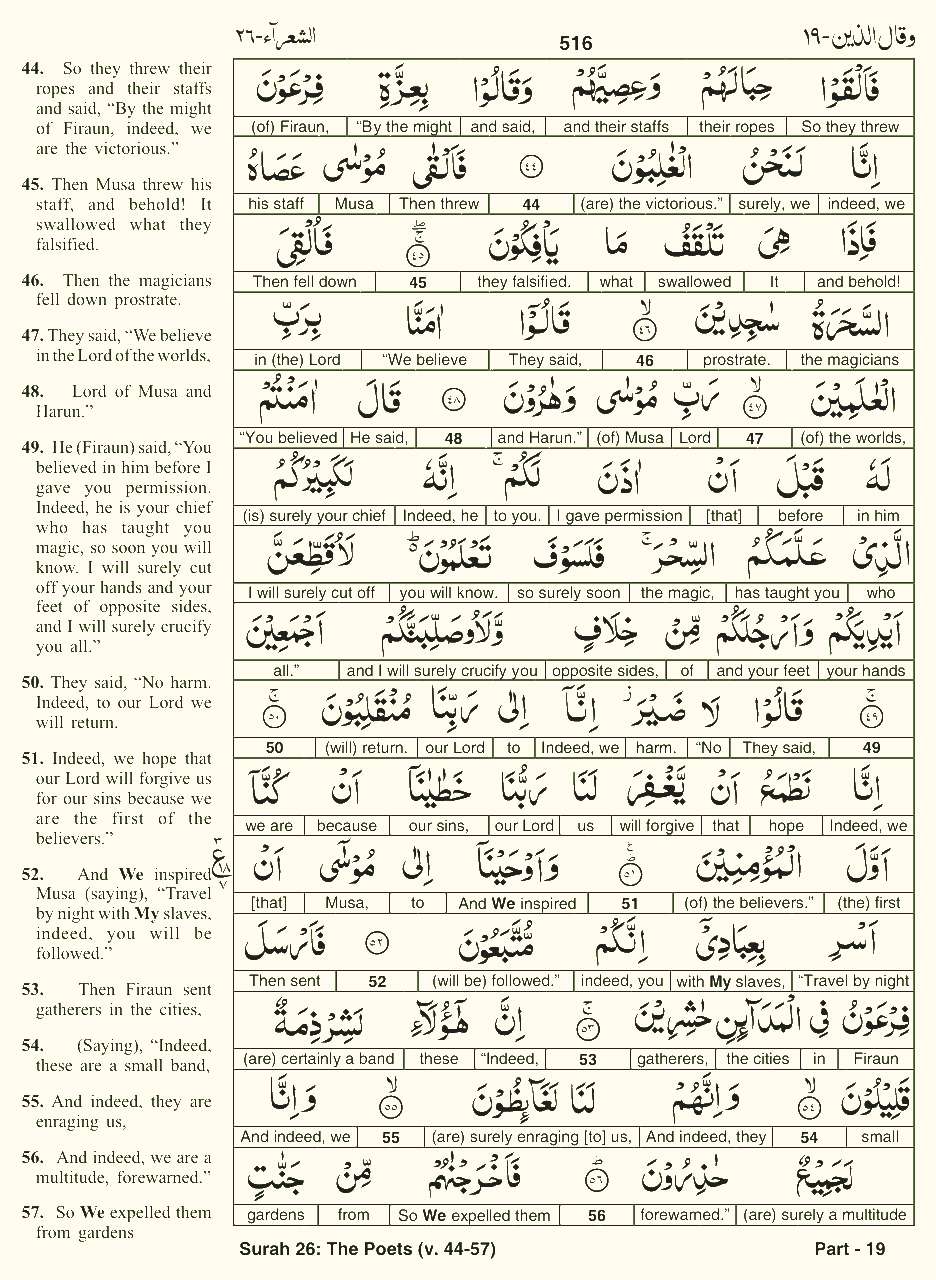 وقال الذين-١٩
516
الشعرآء-٢٦
44. So they threw their
ropes and their staffs
and said, “By the might
of Firaun, indeed, we
are the victorious.”
45. Then Musa threw his
staff, and behold! It
swallowed what they
falsified.
46. Then the magicians
fell down prostrate.
47. They said, “We believe
in the Lord of the worlds,
48. Lord of Musa and
Harun.”
49. He (Firaun) said, “You
believed in him before I
gave you permission.
Indeed, he is your chief
who has taught you
magic, so soon you will
know. I will surely cut
off your hands and your
feet of opposite sides,
and I will surely crucify
you all.”
50. They said, “No harm.
Indeed, to our Lord we
will return.
51. Indeed, we hope that
our Lord will forgive us
for our sins because we
are the first of the
believers.”
52. And We inspired
Musa (saying), “Travel
by night with My slaves,
indeed, you will be
followed.”
53. Then Firaun sent
gatherers in the cities,
54. (Saying), “Indeed,
these are a small band,
55. And indeed, they are
enraging us,
56. And indeed, we are a
multitude, forewarned.”
57. So We expelled them
from gardens
فَاَلْقَوْا حِبَالَهُمْ وَعِصِيَّهُمْ وَقَالُوْا بِعِزَّةِ فِرْعَوْنَ
So they threw their ropes and their staffs and said, “By the might (of) Firaun,
اِنَّا لَنَحْنُ الْغٰلِبُوْنَ ٤٤ فَاَلْقٰى مُوْسٰى عَصَاهُ
indeed, we surely, we (are) the victorious.” 44 Then threw Musa his staff
فَاِذَا هِيَ تَلْقَفُ مَا يَاْفِكُوْنَ ٤٥ فَاُلْقِيَ
and behold! It swallowed what they falsified. 45 Then fell down
السَّحَرَةُ سٰجِدِيْنَ ٤٦ قَالُوْٓا اٰمَنَّا بِرَبِّ
the magicians prostrate. 46 They said, “We believe in (the) Lord
الْعٰلَمِيْنَ ٤٧ رَبِّ مُوْسٰى وَهٰرُوْنَ ٤٨ قَالَ اٰمَنْتُمْ
(of) the worlds, 47 Lord (of) Musa and Harun.” 48 He said, “You believed
لَهٗ قَبْلَ اَنْ اٰذَنَ لَكُمْ ۚ اِنَّهٗ لَكَبِيْرُكُمُ
in him before [that] I gave permission to you. Indeed, he (is) surely your chief
الَّذِيْ عَلَّمَكُمُ السِّحْرَ ۚ فَلَسَوْفَ تَعْلَمُوْنَ ؕ لَاُقَطِّعَنَّ
who has taught you the magic, so surely soon you will know. I will surely cut off
اَيْدِيَكُمْ وَاَرْجُلَكُمْ مِّنْ خِلَافٍ وَّلَاُوصَلِّبَنَّكُمْ اَجْمَعِيْنَ
your hands and your feet of opposite sides, and I will surely crucify you all.”
٤٩ قَالُوْا لَا ضَيْرَ ۡ اِنَّآ اِلٰى رَبِّنَا مُنْقَلِبُوْنَ ٥٠
49 They said, “No harm. Indeed, we to our Lord (will) return. 50
اِنَّا نَطْمَعُ اَنْ يَّغْفِرَ لَنَا رَبُّنَا خَطٰيٰنَآ اَنْ كُنَّآ
Indeed, we hope that will forgive us our Lord our sins, because we are
اَوَّلَ الْمُؤْمِنِيْنَ ٥١ وَاَوْحَيْنَآ اِلٰى مُوْسٰٓى اَنْ ع ٣ ١٨ ٧
(the) first (of) the believers.” 51 And We inspired to Musa, [that]
اَسْرِ بِعِبَادِيْٓ اِنَّكُمْ مُّتَّبَعُوْنَ ٥٢ فَاَرْسَلَ
“Travel by night with My slaves, indeed, you (will be) followed.” 52 Then sent
فِرْعَوْنُ فِي الْمَدَآئِنِ حٰشِرِيْنَ ٥٣ اِنَّ هٰٓؤُلَآءِ لَشِرْذِمَةٌ
Firaun in the cities gatherers, 53 “Indeed, these (are) certainly a band
قَلِيْلُوْنَ ٥٤ وَاِنَّهُمْ لَنَا لَغَآئِظُوْنَ ٥٥ وَاِنَّا
small 54 And indeed, they (are) surely enraging [to] us, 55 And indeed, we
لَجَمِيْعٌ حٰذِرُوْنَ ٥٦ فَاَخْرَجْنٰهُمْ مِّنْ جَنّٰتٍ
(are) surely a multitude forewarned.” 56 So We expelled them from gardens
Surah 26: The Poets (v. 44-57)
Part - 19